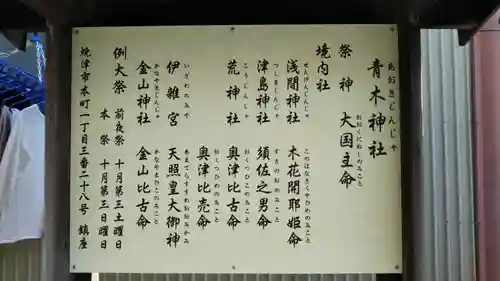 青木神社
あおきじんじゃ
祭神 大国主命
おおくにぬしのみこと
境内社
浅間神社 木花開耶姫命
せんげんじんじゃ このはなさくやひめのみこと
津島神社 須佐之男命
つしまじんじゃ すさのおのみこと
荒神社 奥津比古命
こうじんじゃ おくつひこのみこと
奥津比売命
おくつひめのみこと
伊雑宮 天照皇大御神
いざわのみや あまてらすすめおおみかみ
金山神社 金山比古命
かなやまじんじゃ かなやまひこのみこと
例大祭 前夜祭 十月第三土曜日
本祭 十月第三日曜日
焼津市本町一丁目三番二十八号 鎮座